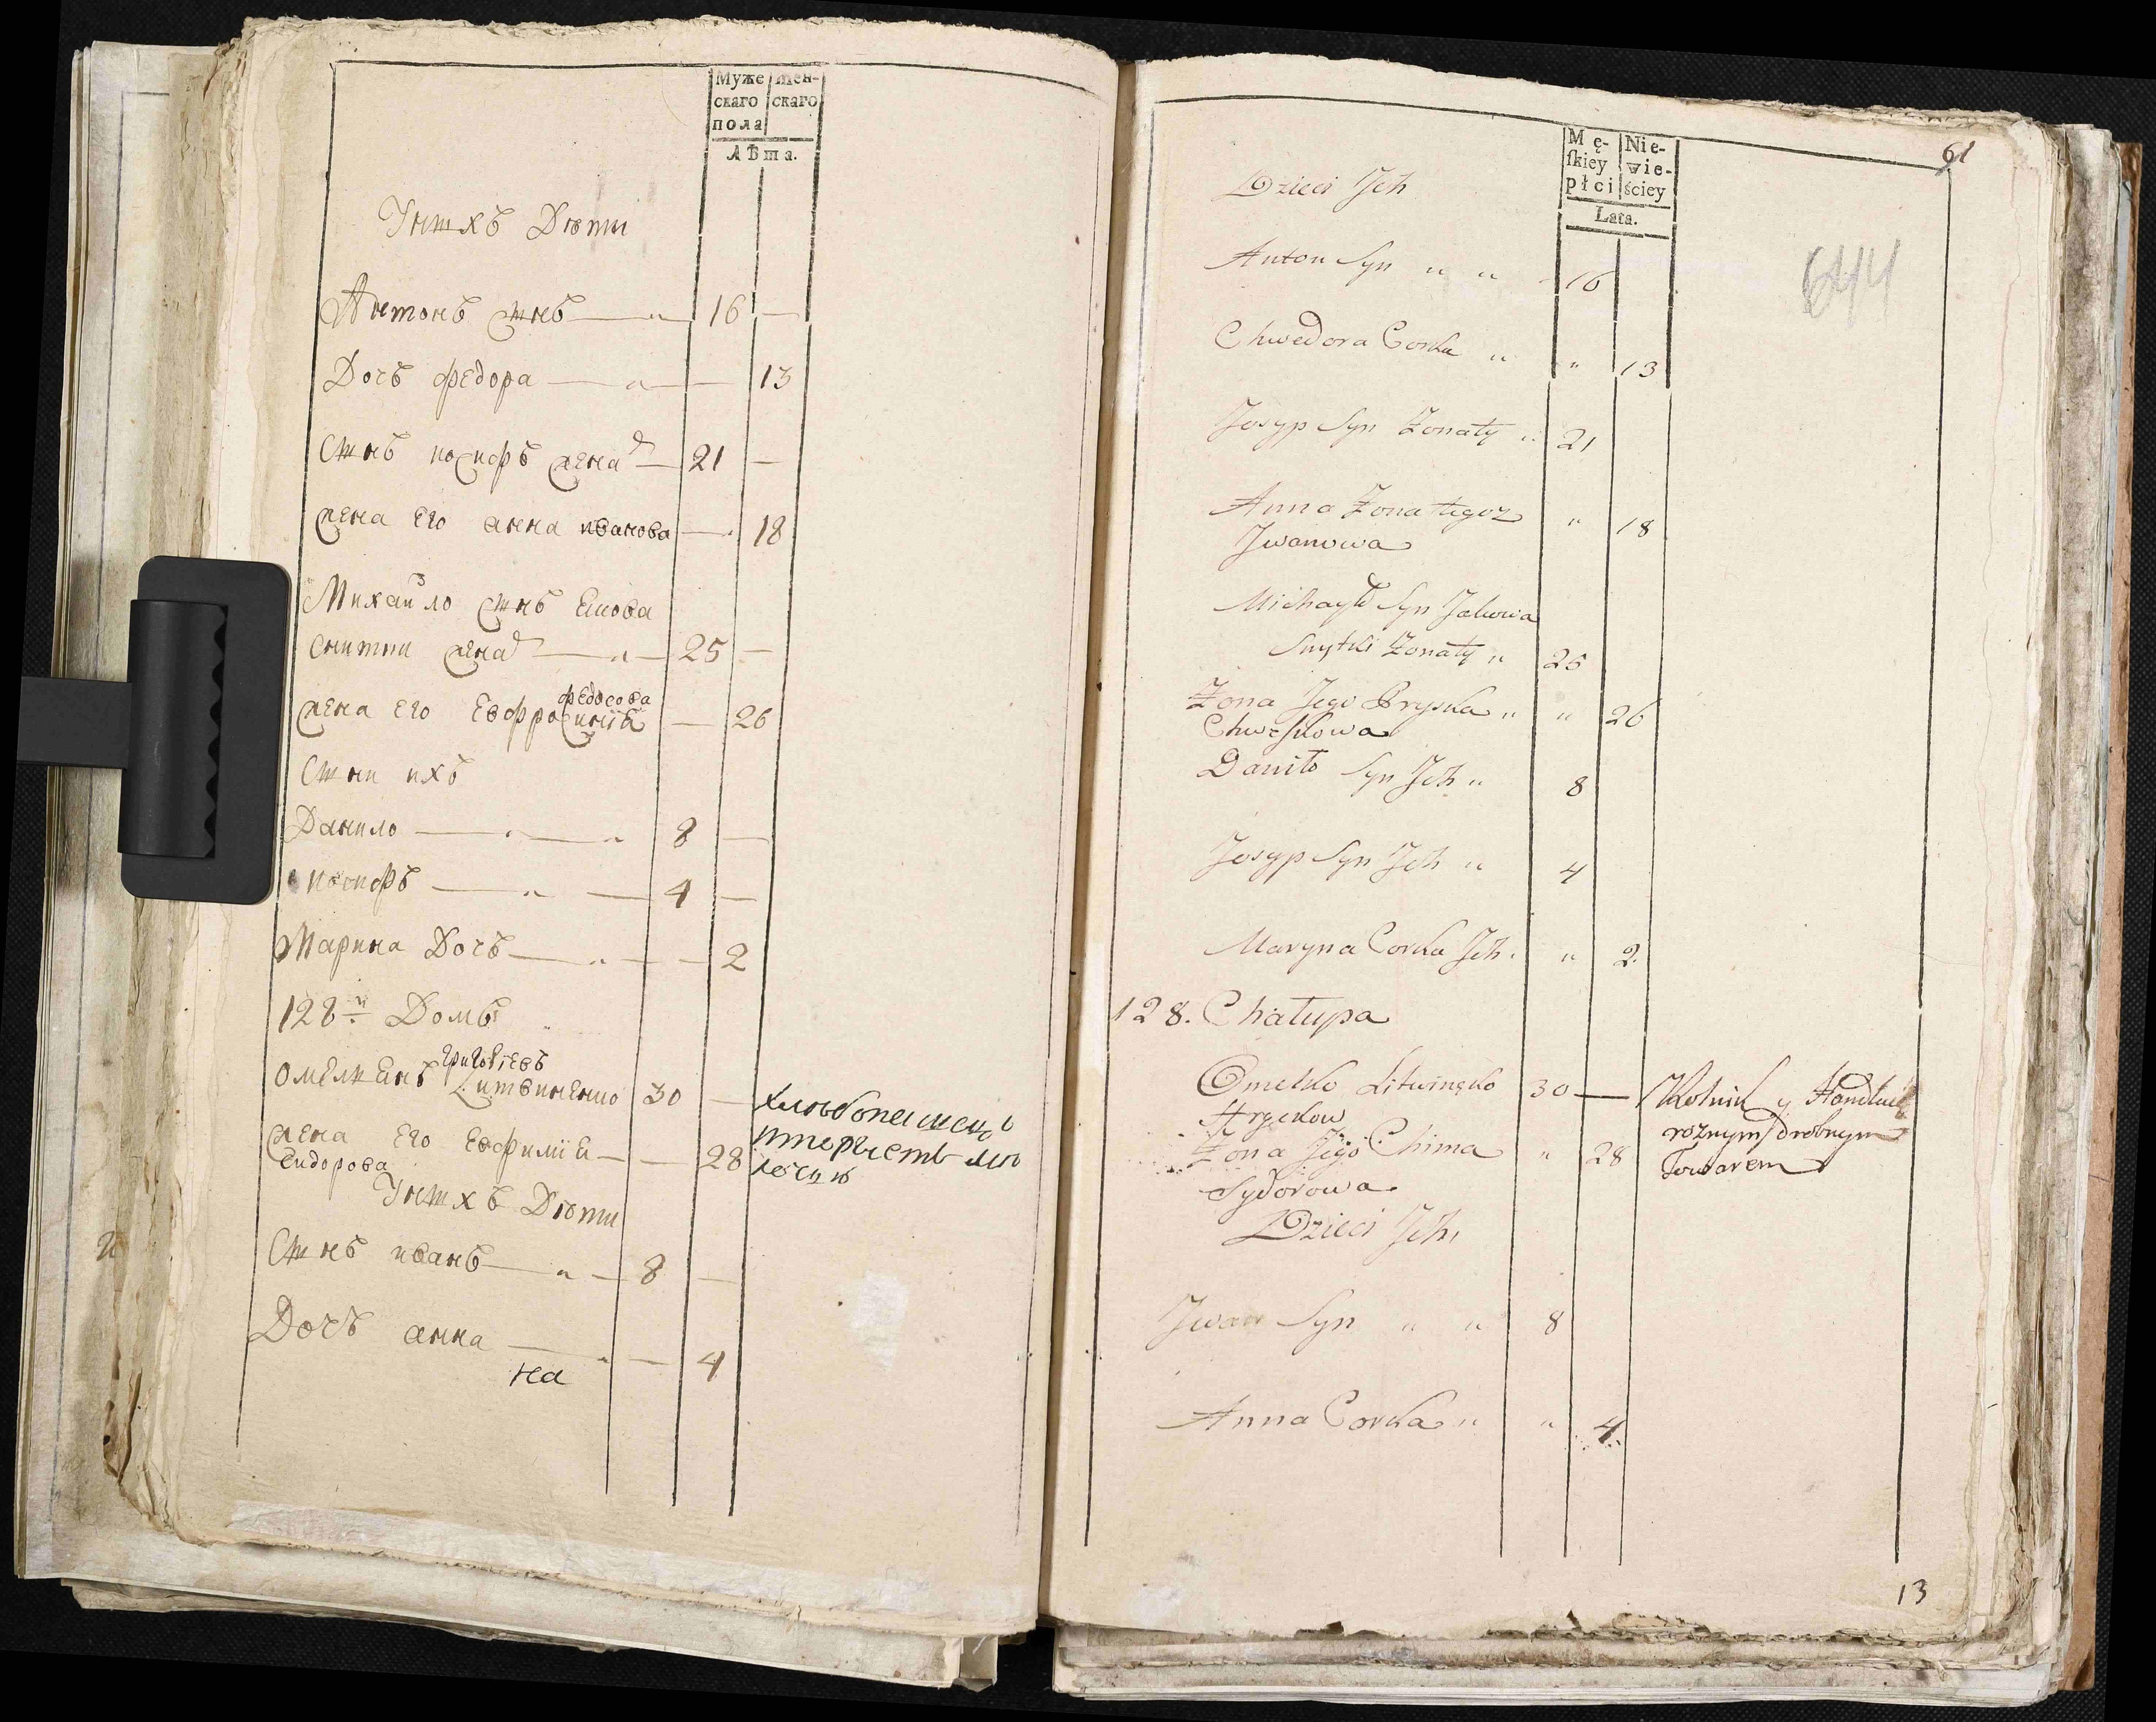 Муже
скаго
пола
жен-
скаго
Лѣта.
Унихъ Дѣти
Антонъ сынъ 16 —
Дочь федора — 13
Сынъ иосифъ жена 21 —
жена его анна иванова — 18
Михайло сынъ
снитки жена 25 —
федосова
жена его Евфросиніѣ — 26
Сыни ихъ
Данило 8 —
иосифъ 4 —
Марина Дочь — 2
128й Домъ
григорьевъ
Литвиненко 30 —
жена его Евфиміѣ — 28
Сидорова
Унихъ Дѣти
Сынъ иванъ 8 —
Дочь анна — 4
на
61
Mę-
skiey
płci
Nie-
wie-
ściey
Lata.
644
Dzieci Jch
Anton Syn „ „ 16
Chwedora Corka „ „ 13
Josyp Syn Żonaty „ 21
Anna Żona tegoz „ 18
Jwanowa
Michayło Syn Jakowa
Snytki Żonaty „ 25
Żona Jego Pryska „ „ 26
Danilo Syn Jch „ 8
Josyp Syn Jch „ 4
Maryna Corka Jch. „ 2.
128. Chałupa
Omelko Litwinęko 30 —
Rolnik y
roznym drobnym
Towarem
Żona Jego Chima „ 28
Sydorowa
Dzieci Jch,
Jwan Syn „ „ 8
Anna Corka „ „ 4.
13